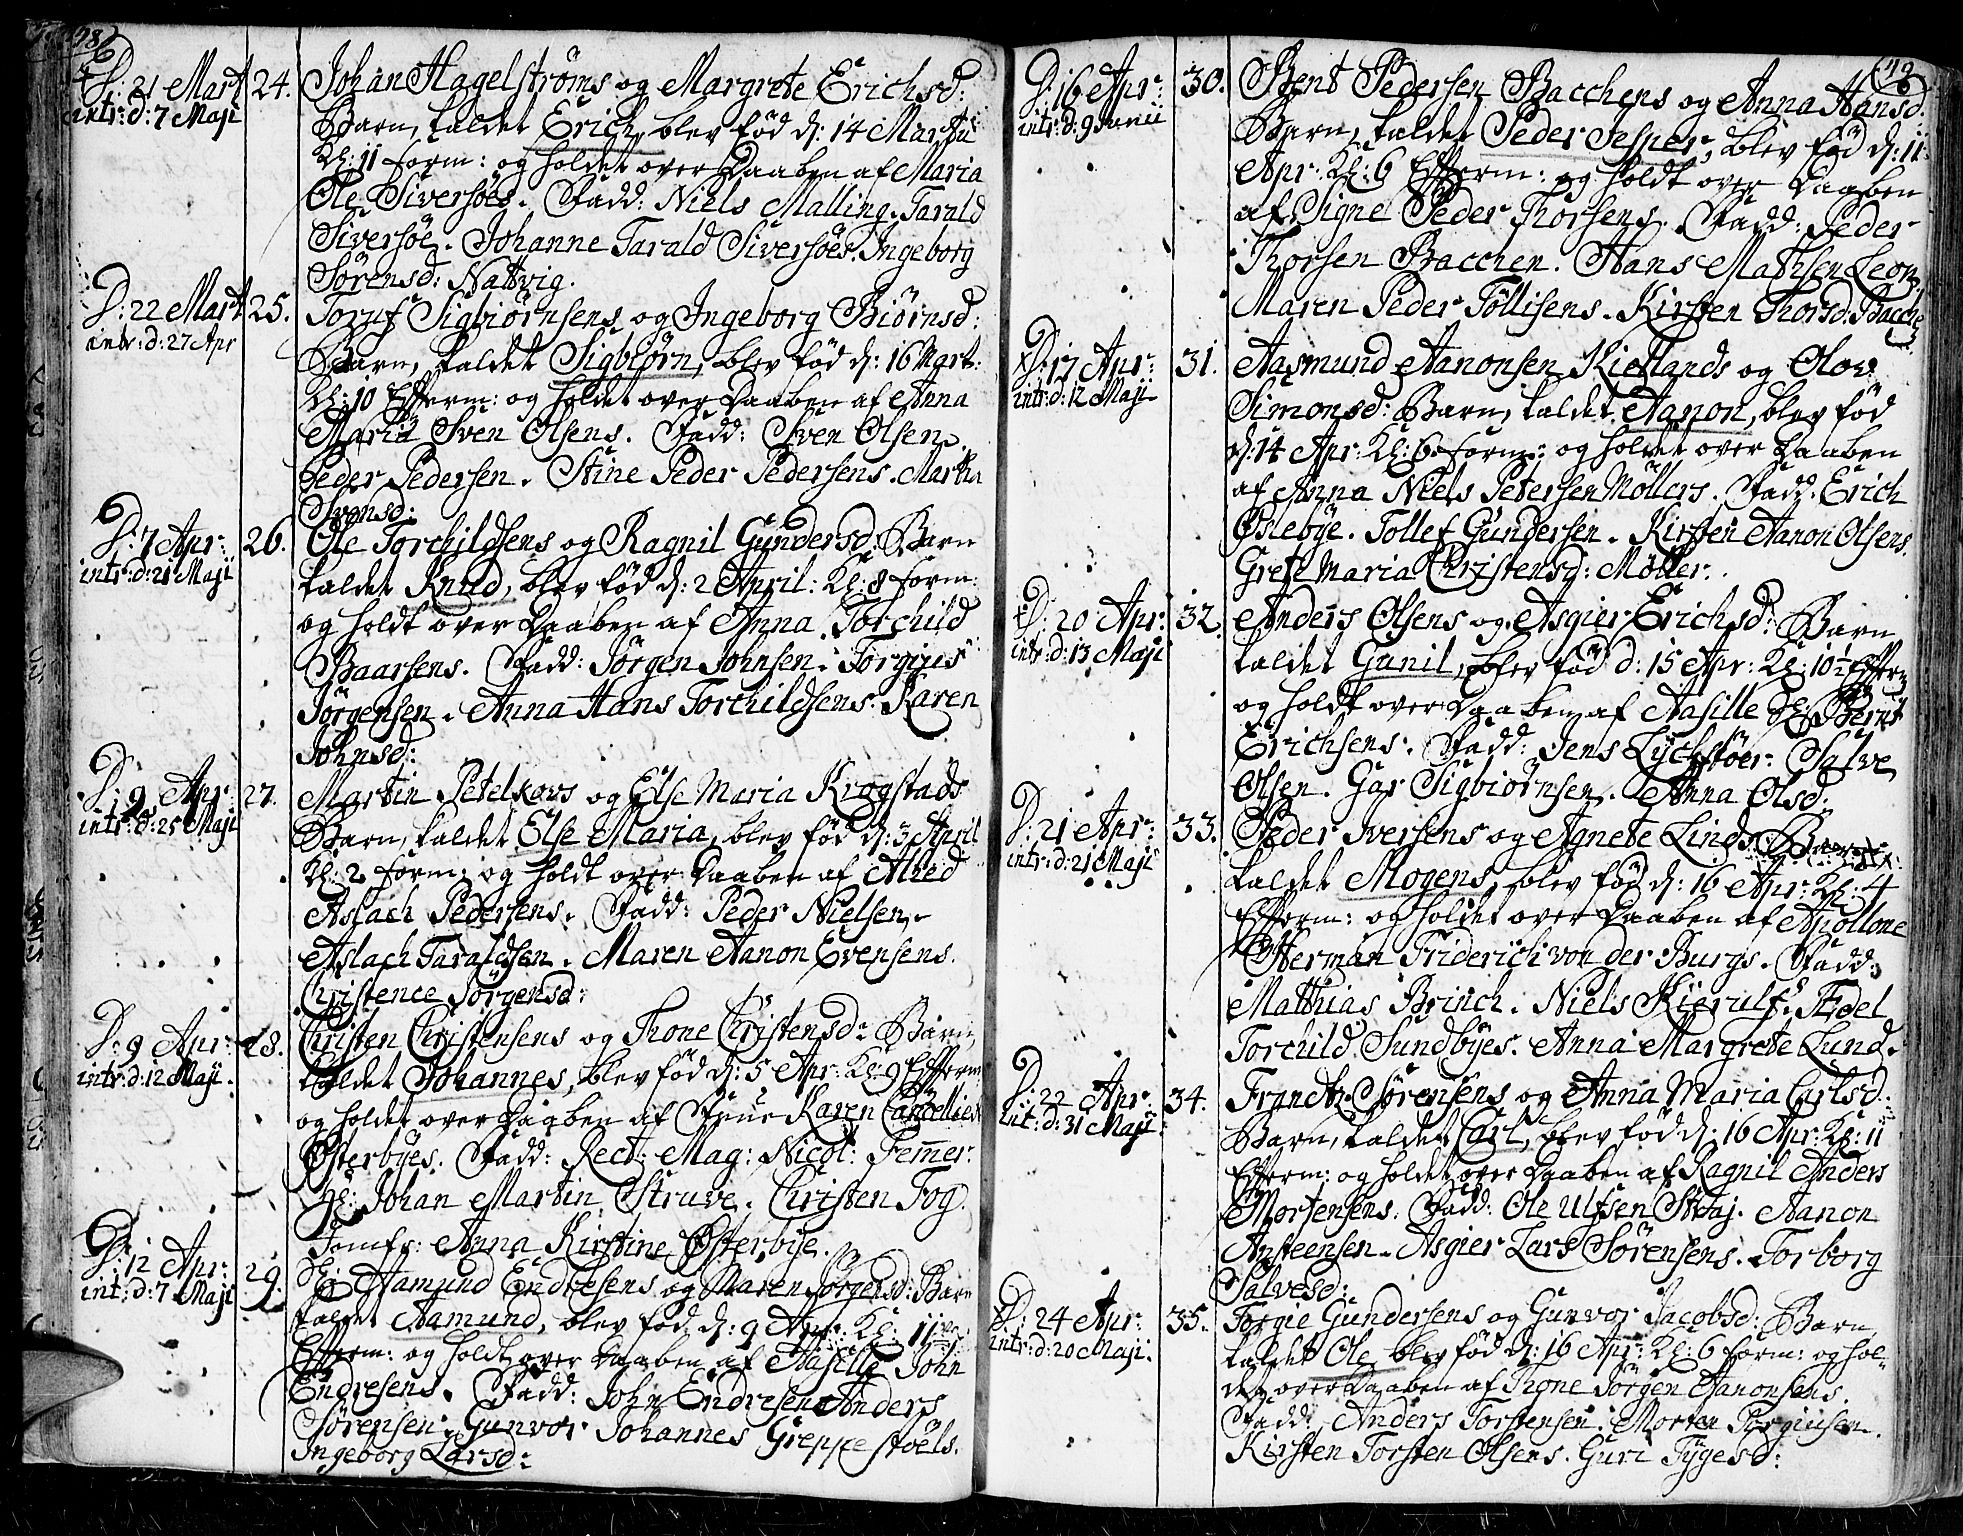 D: 21 Mart
intr: d: 7 Maji
24.
Johan Hagelstrøms og Margrete Erichsd:
Barn, kaldet Erich, blev fød d: 14 Martii
Kl: 11 form: og holdet over Daaben af Maria
Ole Siversøes. Fadd: Niels Malling. Tarald
Siversøe. Johanne Tarald Siversøes. Ingeborg
Sørensd: Nattvig.
D: 22 Mart
intr: d: 27 Apr
25.
Tozuf Sigbiørnsens og Ingeborg Biørnsd:
Barn, kaldet Sigbiørn, blev fød d: 16 Mart:
Kl: 10 Efferm: og holdet over Daaben af Anna
Maria Sven Olsens. Fadd: Sven Olsen.
Peder Pedersen. Stine Peder Pedersens. Martha
Svensd:
D: 7 Apr:
intr: d: 21 Maji
26.
Ole Torchildsens og Ragnil Gundersd: Barn
kaldet Knud, blev fød d: 2 April: Kl: 8 form:
og holdt over Daaben af Anna Torchild
Baarsens. Fadd: Jørgen Johnsen. Torgius
Jørgensen. Anna Hans Torchildsens. Karen
Johnsd:
D: 9 Apr:
intr: d: 25 Maji
27.
Martin Petelkovs og Else Maria Krogstads
Barn, kaldet Else Maria, blev fød d: 3 April
Kl: 2 form: og holdt over Daaben af Alhed
Aslach Pedersens. Fadd: Peder Nielsen.
Aslach Taraldsen. Maren Aanon Evensens.
Christence Jørgensd:
D: 9 Apr:
intr: d: 12 Maji.
28.
Christen Christensens og Thone Christensd: Barn,
kaldet Johannes, blev fød d: 5 Apr: Kl: 9 Efferm:
og holdet over Daaben af Frue Karen Cancellie
Østerbyes. Fadd: Rect: Mag: Nicol: Femmer.
Hr: Johan Martin Struve. Christen Fog.
Jomfr: Anna Kirstine Østerbye.
D: 12 Apr:
int: d: 7 Maji
29.
Aamund Endresens og Maren Jørgensd: Barn
kaldet Aamund, blev fød d: 9 Apr: Kl: 11
Efferm: og holdt over Daaben af Aasille John
Endresens. Fadd: John Endresen Anders
Sørensen. Gunvor Johannes Greppestøels.
Ingeborg Larsd:
D: 16 Apr:
intr: d: 9 Junii
30.
Bent Pedersen Bacchens og Anna Hansd.
Barn, kaldet Peder Jesper, blev fød d: 11
Apr: Kl: 6 Efferm: og holdt over Daaben
af Signe Peder Thorsens. Fadd: Peder
Thorsen Bacchen. Hans Mathsen Leon.
Maren Peder Tøllisens. Kirsten Thorsd: Bacche
D: 17 Apr:
intr: d: 12 Maji
31.
Aasmund Aanonsen Kiellands og Olov
Simonsd: Barn, kaldet Aanon, blev fød
d: 14 Apr: Kl: 6 form: og holdet over Daaben
af Anna Niels Petersen Møllers. Fadd: Erich
Oslebye. Tollef Gundersen. Kirsten Aanon Olsens.
Grete Maria Christensd: Møller.
D: 20 Apr:
intr: d: 13 Maji
32.
Anders Olsens og Asgier Erichsd: Barn
kaldet Gunil, blev fød d: 15 Apr: Kl: 10½ Efferm
og holdt over Daaben af Aasille Bernt
Erichsens. Fadd: Jens Lychstøer. Salve
Olsen. Gar Sigbiørnsen. Anna Olsd:
D: 21 Apr:
intr: d: 21 Maji
33.
Peder Iversens og Agnete Linds Barn
kaldet Mogens, blev fød d: 16 Apr: Kl: 4
Efferm: og holdet over Daaben af Apollone
Herman Friderich von der Burgs. Fadd:
Matthias Brinch. Niels Kierulf. Fidel
Torchild Sundbyes. Anna Margrete Lund.
D: 22 Apr:
int: d: 31 Maji
34.
Frandtz Sørensens og Anna Maria Carlsd.
Barn, kaldet Carl, blev fød d: 16 Apr: Kl: 11
Efferm: og holdet over Daaben af Ragnil Anders
Mortensens. Fadd: Ole Ulfsen Staj. Aanon
Ansteensen. Asgier Lars Sørensens. Torborg
Salvesd:
D: 24 Apr:
intr: d: 20 Maji.
35.
Torgie Gundersens og Gunvor Jacobsd: Barn
kaldet Ole blev fød d: 16 Apr: Kl: 6 form: og hol-
det over Daaben af Thone Jørgen Aanonsens
Fadd: Anders Torstensen. Morten Torgiusen.
Kirsten Torsten Olsens. Guri Tygesd: